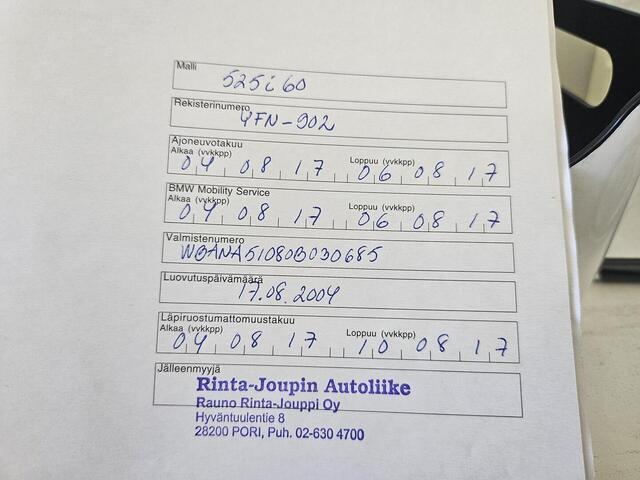 Malli
525i 60
Rekisterinumero
YFN-902
Ajoneuvotakuu
Alkaa (vvkkpp) Loppuu (vvkkpp)
04 08 17 06 08 17
BMW Mobility Service
Alkaa (vvkkpp) Loppuu (vvkkpp)
04 08 17 06 08 17
Valmistenumero
WBANA51080B030685
Luovutuspäivämäärä
17.08.2004
Läpiruostumattomuustakuu
Alkaa (vvkkpp) Loppuu (vvkkpp)
04 08 17 10 08 17
Jälleenmyyjä
Rinta-Joupin Autoliike
Rauno Rinta-Jouppi Oy
Hyväntuulentie 8
28200 PORI, Puh. 02-630 4700